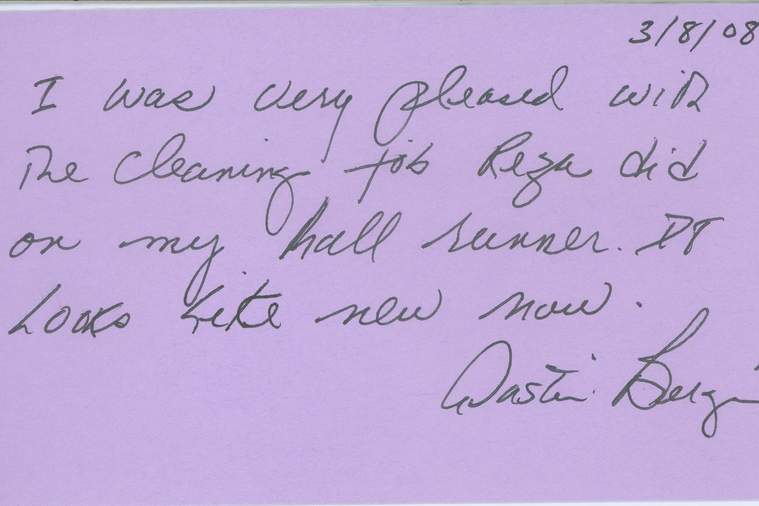 3/8/08
I was very pleased with
the cleaning job Reza did
on my hall runner. It
looks like new now.